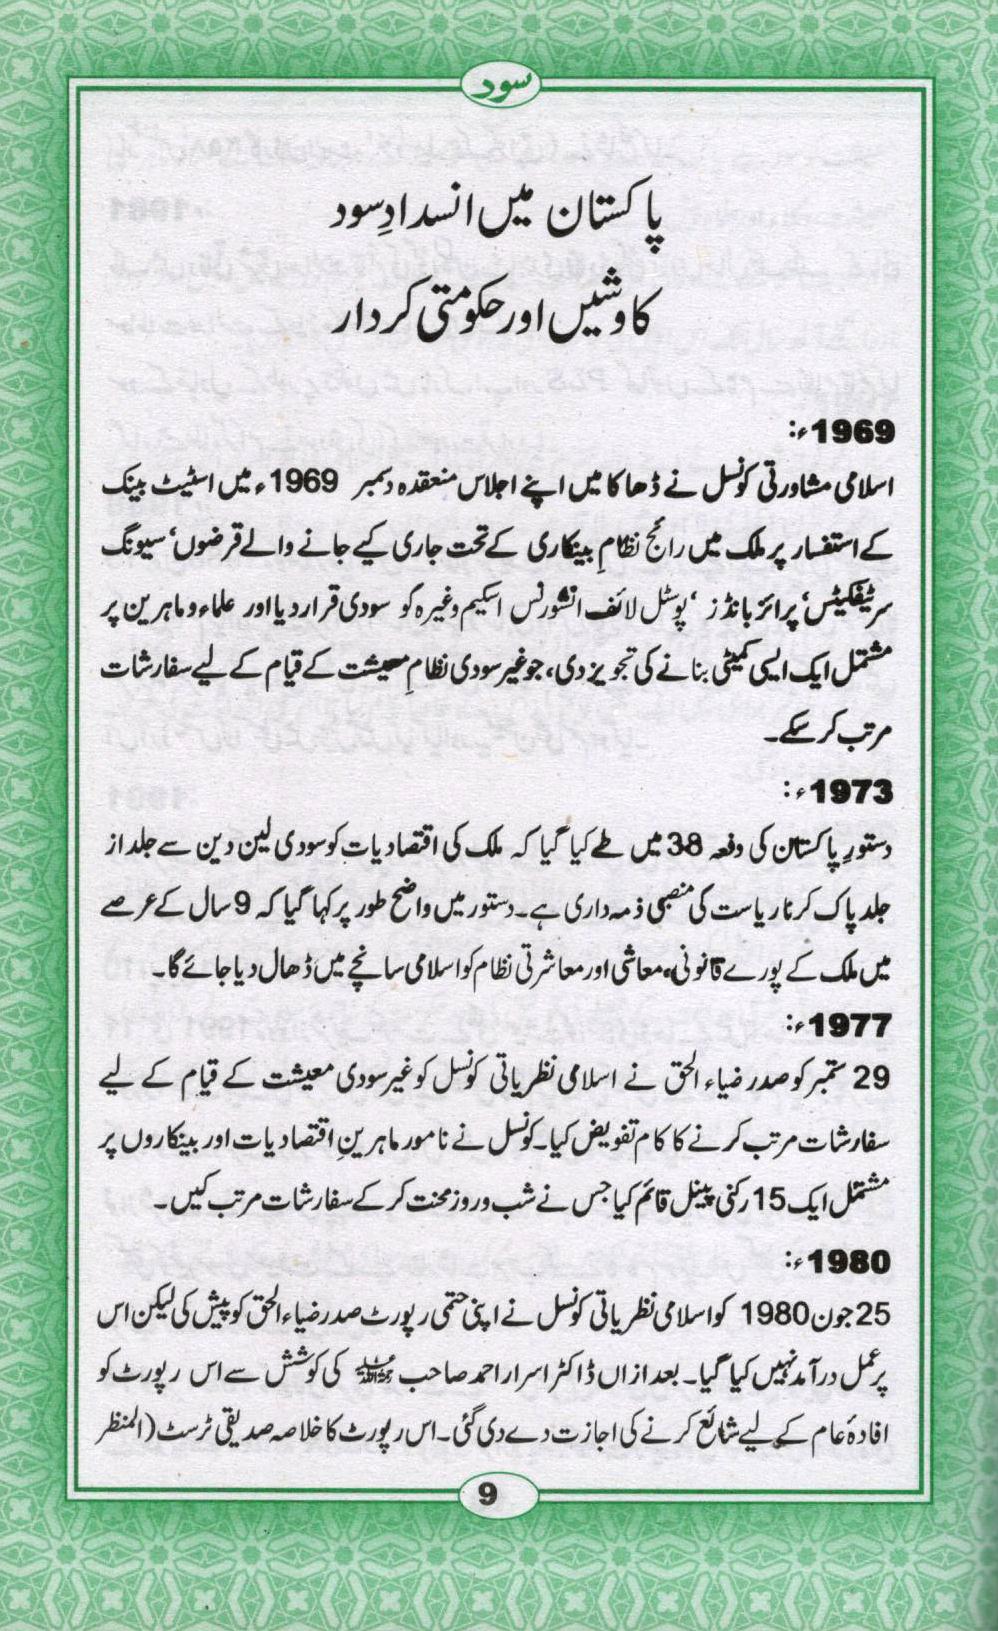 سود
پاکستان میں انسدادِسود
کاوشیں اور حکومتی کردار
1969ء:
اسلامی مشاورتی کونسل نے ڈھاکا میں اپنے اجلاس منعقدہ دسمبر 1969ء میں اسٹیٹ بینک
کے استفسار پر ملک میں رائج نظامِ بینکاری کے تحت جاری کیے جانے والے قرضوں‘ سیونگ
سرٹیفکیٹس‘ پرائز بانڈز ‘ پوسٹل لائف انشورنس اسکیم وغیرہ کو سودی قرار دیا اور علماء و ماہرین پر
مشتمل ایک ایسی کمیٹی بنانے کی تجویز دی، جو غیر سودی نظامِ معیشت کے قیام کے لیے سفارشات
مرتب کر سکے۔
1973ء:
دستورِ پاکستان کی دفعہ 38 میں طے کیا گیا کہ ملک کی اقتصادیات کو سودی لین دین سے جلد از
جلد پاک کرنا ریاست کی منصبی ذمہ داری ہے۔ دستور میں واضح طور پر کہا گیا کہ 9 سال کے عرصے
میں ملک کے پورے قانونی، معاشی اور معاشرتی نظام کو اسلامی سانچے میں ڈھال دیا جائے گا۔
1977ء:
29 ستمبر کو صدر ضیاء الحق نے اسلامی نظریاتی کونسل کو غیر سودی معیشت کے قیام کے لیے
سفارشات مرتب کرنے کا کام تفویض کیا۔ کونسل نے نامور ماہرینِ اقتصادیات اور بینکاروں پر
مشتمل ایک 15 رکنی پینل قائم کیا جس نے شب و روز محنت کر کے سفارشات مرتب کیں۔
1980ء:
25 جون 1980 کو اسلامی نظریاتی کونسل نے اپنی حتمی رپورٹ صدر ضیاء الحق کو پیش کی لیکن اس
پر عمل درآمد نہیں کیا گیا۔ بعد ازاں ڈاکٹر اسرار احمد صاحب رحمۃ اللہ علیہ کی کوشش سے اس رپورٹ کو
افادۂ عام کے لیے شائع کرنے کی اجازت دے دی گئی۔ اس رپورٹ کا خلاصہ صدیقی ٹرسٹ (المنظر
9